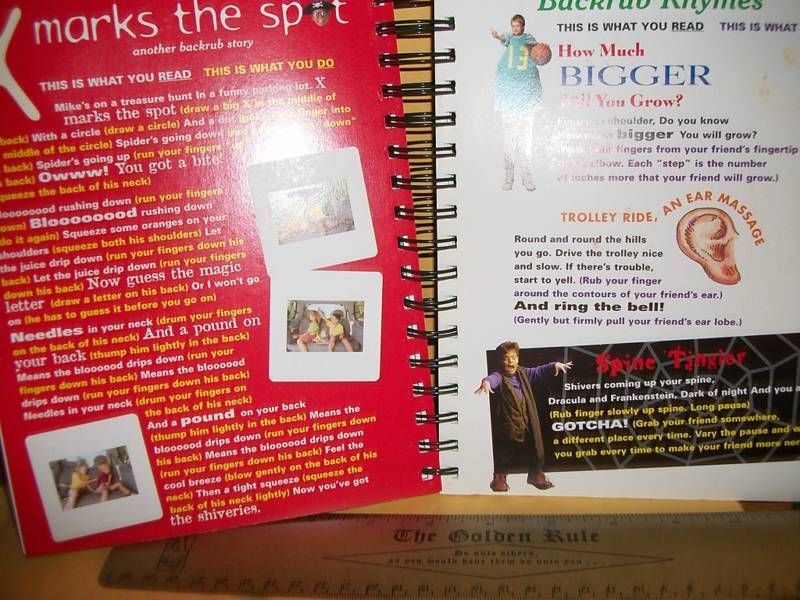 X marks the spot
another backrub story
THIS IS WHAT YOU READ THIS IS WHAT YOU DO
Mike's on a treasure hunt In a funny parking lot. X
marks the spot (draw a big X in the middle of
back) With a circle (draw a circle) And a dot finger into
middle of the circle) Spider's going down down"
back) Spider's going up (run your fingers
back) Owww! You got a bite!
squeeze the back of his neck)
looooooood rushing down (run your fingers
own) Blooooooood rushing down
do it again) Squeeze some oranges on your
shoulders (squeeze both his shoulders) Let
the juice drip down (run your fingers down his
back) Let the juice drip down (run your fingers
down his back) Now guess the magic
letter (draw a letter on his back) Or I won't go
on (he has to guess it before you go on)
Needles in your neck (drum your fingers
on the back of his neck) And a pound on
your back (thump him lightly in the back)
Means the bloooood drips down (run your
fingers down his back) Means the bloooood
drips down (run your fingers down his back)
Needles in your neck (drum your fingers on
the back of his neck)
And a pound on your back
(thump him lightly in the back) Means the
bloooood drips down (run your fingers down
his back) Means the bloooood drips down
(run your fingers down his back) Feel the
cool breeze (blow gently on the back of his
neck) Then a tight squeeze (squeeze the
back of his neck lightly) Now you've got
the shiveries.
Backrub Rhymes
THIS IS WHAT YOU READ THIS IS WHAT
13
How Much
BIGGER
Will You Grow?
shoulder, Do you know
bigger You will grow?
your fingers from your friend's fingertip
elbow. Each "step" is the number
of inches more that your friend will grow.)
TROLLEY RIDE, AN EAR MASSAGE
Round and round the hills
you go. Drive the trolley nice
and slow. If there's trouble,
start to yell. (Rub your finger
around the contours of your friend's ear.)
And ring the bell!
(Gently but firmly pull your friend's ear lobe.)
Spine Tingler
Shivers coming up your spine,
Dracula and Frankenstein, Dark of night And you a
(Rub finger slowly up spine. Long pause)
GOTCHA! (Grab your friend somewhere,
a different place every time. Vary the pause and w
you grab every time to make your friend more ner
The Golden Rule
Do unto others,
as you would have them do unto you . . .